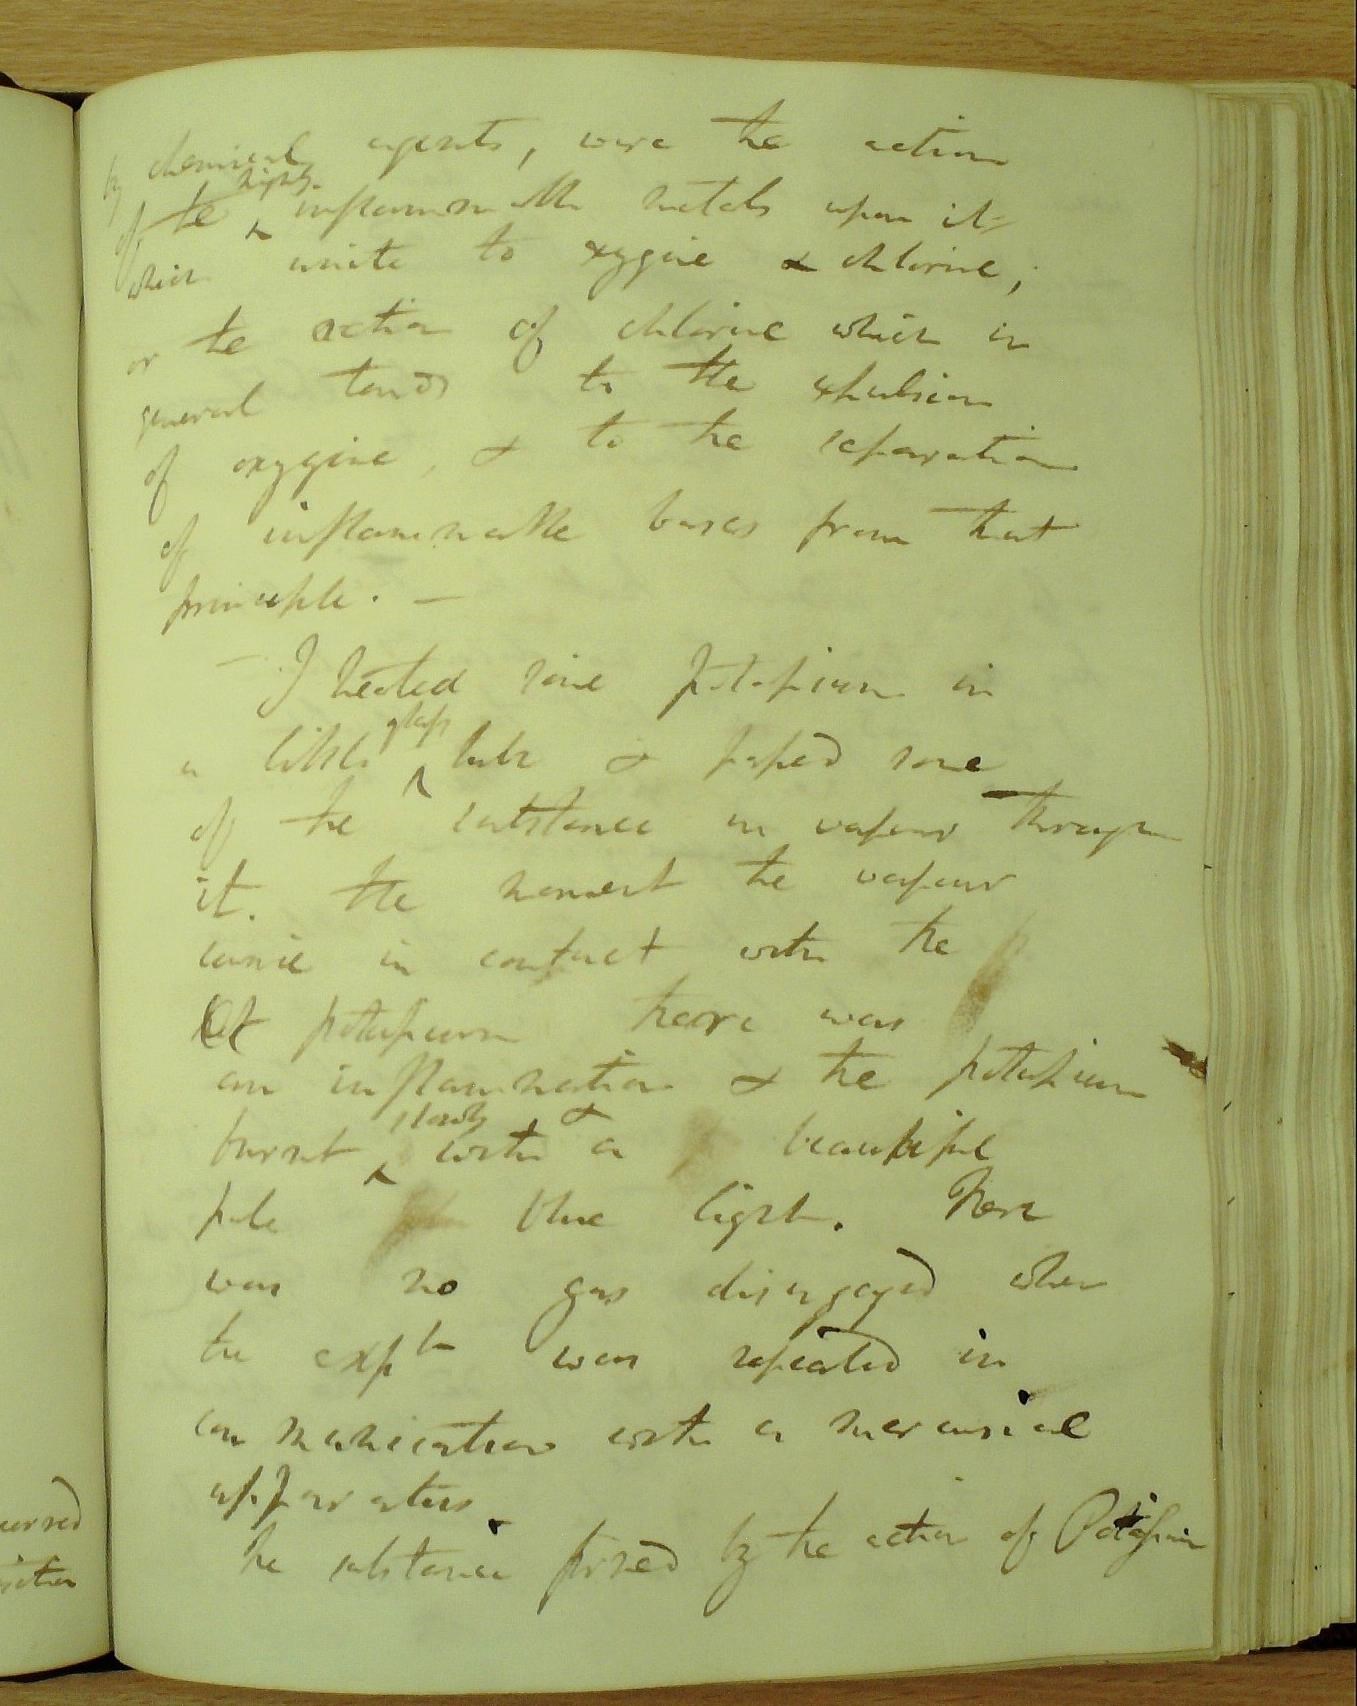 by chemical agents, were the action
of the highly inflammable metals upon it
which unite to oxygine & chlorine;
or the action of chlorine which in
general tends to the expulsion
of oxygine, & to the separation
of inflammable bases from that
principle. —
— I heated some potassium in
a little glass tube & passed some
of the substance in vapour through
it. The moment the vapour
came in contact with the
potassium there was
an inflammation & the potassium
burnt slowly & with a beautiful
pale blue light. There
was no gas disengaged when
the expt was repeated in
communication with a mercurial
apparatus.
The substance formed by the action of Potassium